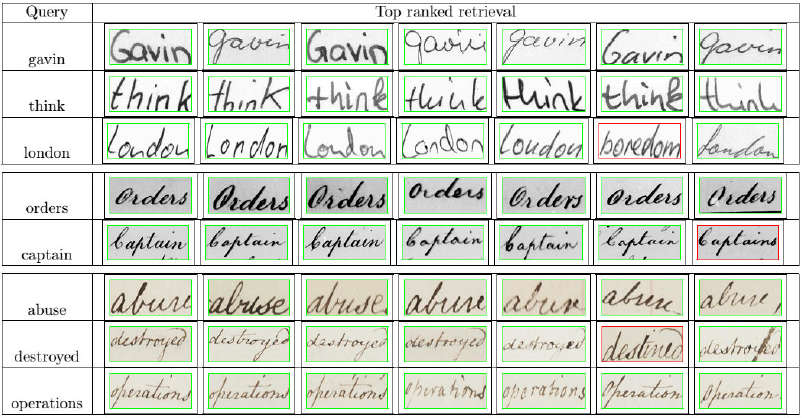 Query Top ranked retrieval
gavin Gavin gavin Gavin gavin gavin Gavin gavin
think think think think think think think think
london London London London London London boredom London
orders Orders Orders Orders Orders Orders Orders Orders
captain Captain Captain Captain Captain Captain Captain Captains
abuse abuse abuse abuse abuse abuse abuse abuse,
destroyed destroyed destroyed destroyed destroyed destroyed destined destroyed
operations operations operations operations operations operations Operation Operation.